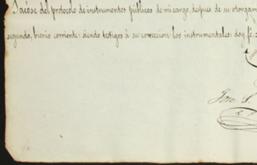 Sacóse del protocolo de instrumentos públicos de mi cargo, despues de su otorgam
segundo, bienio corriente: siendo testigos á su correccion los instrumentales: doy fe